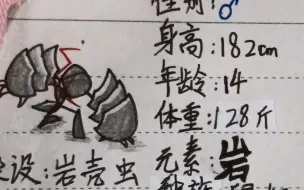 性别:♂
身高:182cm
年龄:14
体重:128斤
元素:岩
设:岩壳虫